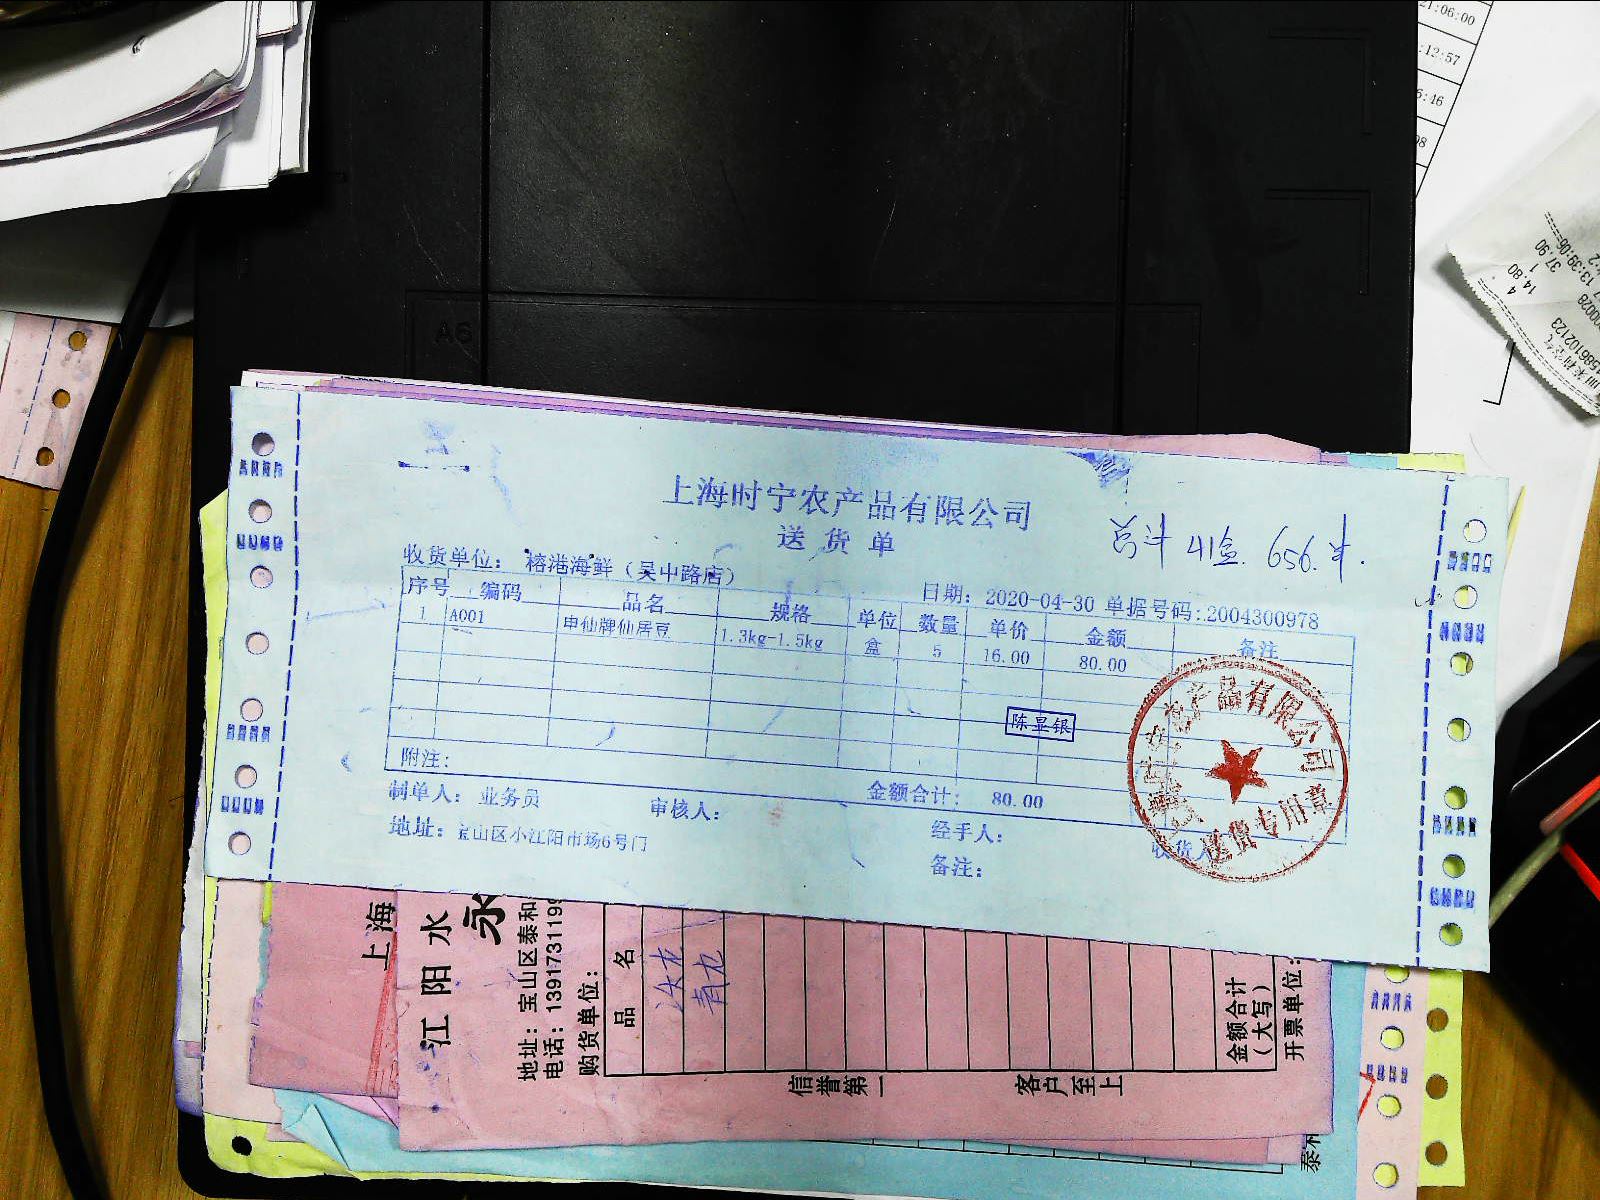 上海时宁农产品有限公司
送货单
总计 41盒. 656.
收货单位: 榕港海鲜（吴中路店）
日期: 2020-04-30 单据号码:2004300978
序号 编码 品名 规格 单位 数量 单价 金额 备注
1 A001 申仙牌仙居豆 1.3kg-1.5kg 盒 5 16.00 80.00
陈显银
附注:
金额合计: 80.00
制单人: 业务员 审核人: 经手人: 收货人
地址: 宝山区小江阳市场6号门 备注:
农产品有限公司
送货专用章
上海
江阳水
永
地址: 宝山区泰和
电话: 1391731199
购货单位:
品名
青九
金额合计
（大写）
开票单位:
信誉第一 客户至上
泰和
A5
21:06:00
:12:57
5:46
98
37.90
13:39:06
14.80
4
1